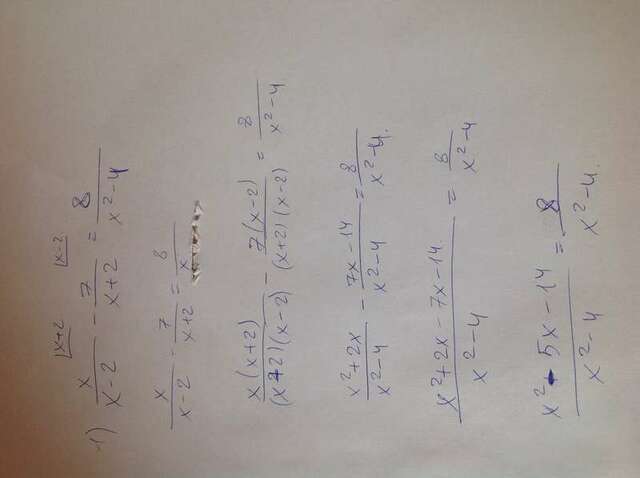 |x+2 |x-2
1) x/(x-2) - 7/(x+2) = 8/(x²-4)
x/(x-2) - 7/(x+2) = 8/x
x(x+2)/((x+2)(x-2)) - 7(x-2)/((x+2)(x-2)) = 8/(x²-4)
(x²+2x)/(x²-4) - (7x-14)/(x²-4) = 8/(x²-4).
(x²+2x-7x-14)/(x²-4) = 8/(x²-4)
(x²-5x-14)/(x²-4) = 8/(x²-4).